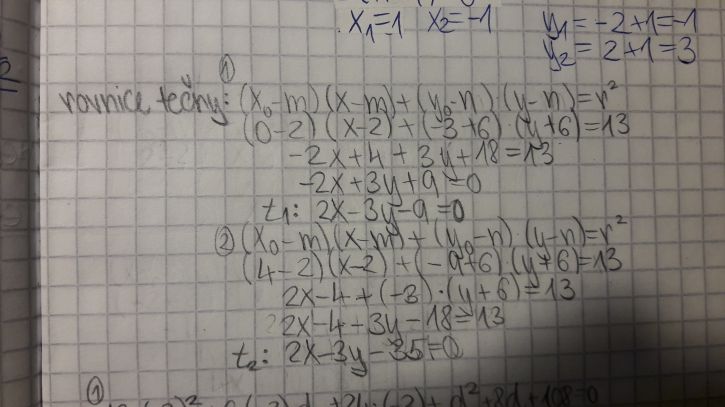 x₁=1 x₂=-1 y₁=-2+1=-1
y₂=2+1=3
①
rovnice tečny: (x₀-m)(x-m)+(y₀-n)·(y-n)=r²
(0-2)(x-2)+(-3+6)·(y+6)=13
-2x+4+3y+18=13
-2x+3y+9=0
t₁: 2x-3y-9=0
② (x₀-m)(x-m)+(y₀-n)·(y-n)=r²
(4-2)(x-2)+(-9+6)·(y+6)=13
2x-4+(-3)·(y+6)=13
2x-4-3y-18=13
t₂: 2x-3y-35=0
①